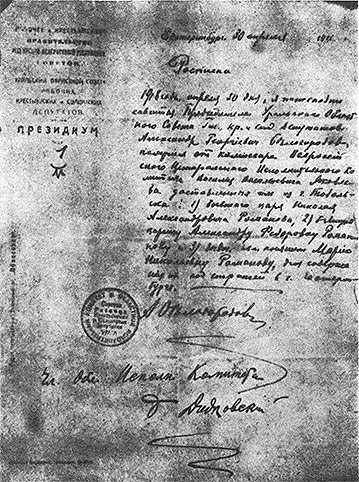 РАБОЧЕЕ и КРЕСТЬЯНСКОЕ
ПРАВИТЕЛЬСТВО
СОВЕТОВ.
УРАЛЬСКИЙ ОБЛАСТНОЙ СОВЕТ
РАБОЧИХ,
КРЕСТЬЯНСКИХ и СОЛДАТСКИХ
ДЕПУТАТОВ.
ПРЕЗИДИУМ
Екатеринбург. 30 апреля 191
Росписка
1918 года апреля 30 дня, я нижеподпи
савшийся Председатель Уральского Област
ного Совета Раб. кр. и солд. депутатов
Александр Георгиевич Белобородов,
получил от комиссара Всеросси
йского Центрального Исполнительного Ко
митета Василия Васильевича Яковле
ва доставленных им из г. Тоболь
ска: 1) бывшего царя Николая
Александровича Романова, 2) бывшую
царицу Александру Федоровну Рома
нову и 3) бывш. вел. княжну Марию
Николаевну Романову, для содержа
ния их под стражей в г. Екатерин
бурге.
А. Белобородов
Чл. Обл. Исполн Комитета
Дидковский